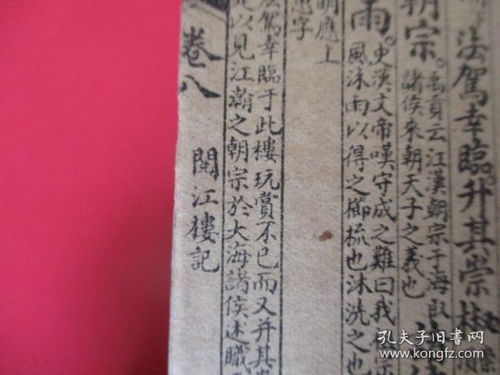 法駕幸臨升其崇
朝宗
禹貢云江漢朝宗于海
諸侯來朝天子之義也
雨
史漢文帝嘆守成之難曰我
風沐雨以得之櫛梳也沐洗之也
明應上
法駕幸臨于此樓玩賞不已而又升其
此以見江瀚之朝宗於大海諸侯述職
卷八
閱江樓記
孔夫子旧书网
www.kongfz.com